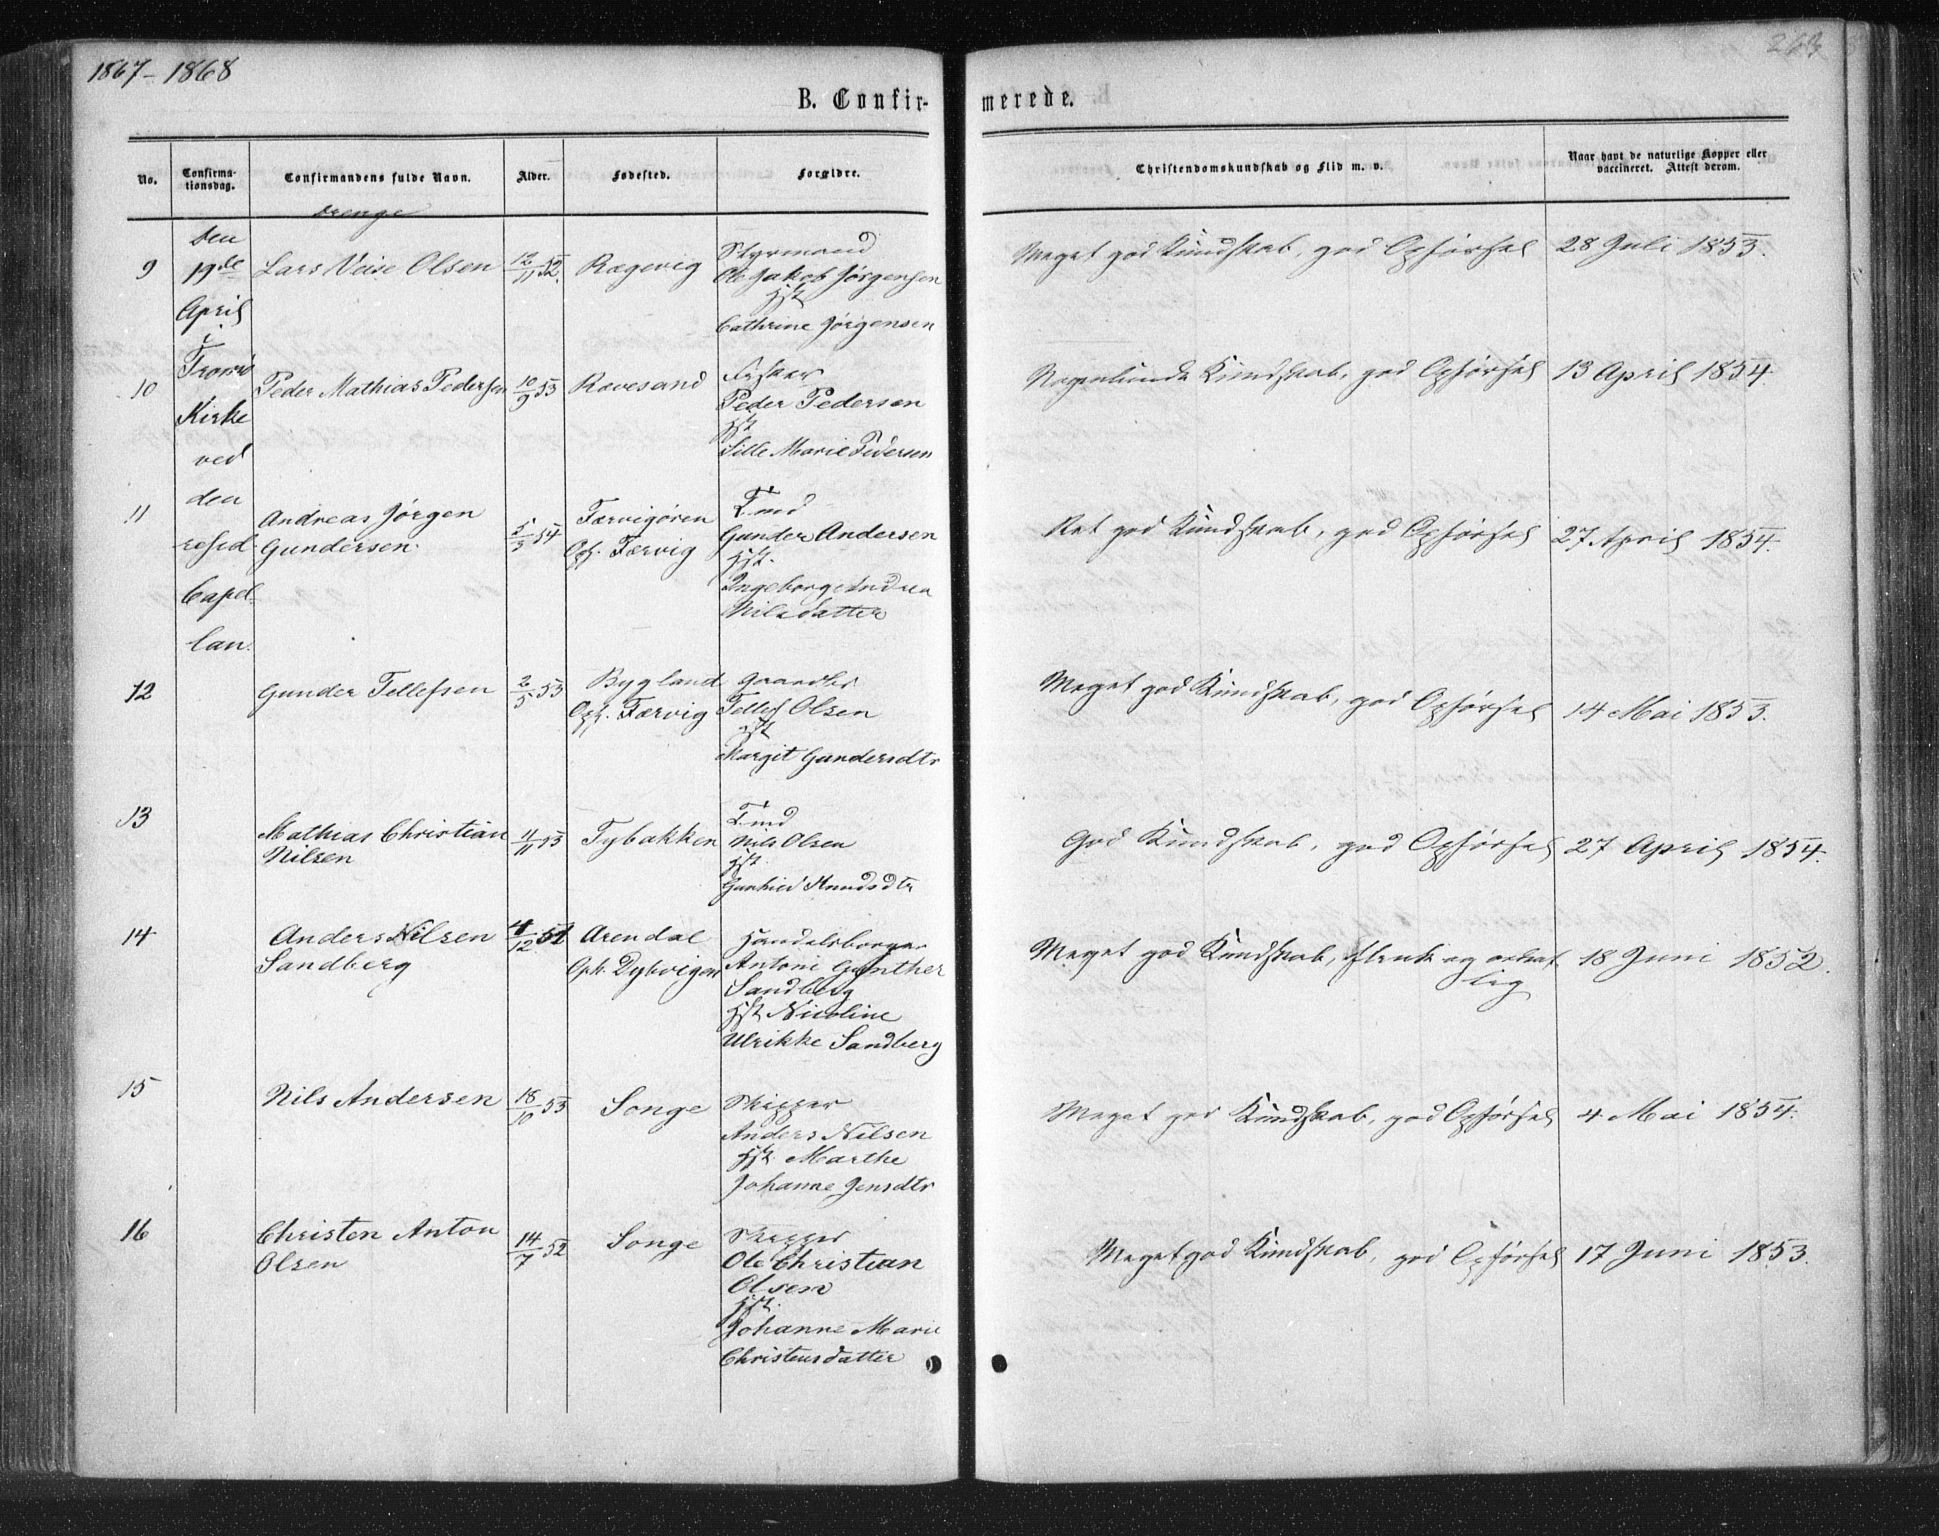 1867-1868
263
B. Confir-
merede.
No.
Confirma-
tionsdag.
Confirmandens fulde Navn.
Alder.
Fødested.
Forældre.
Christendomskundskab og Flid m. v.
Naar havt de naturlige Kopper eller
vaccineret. Attest derom.
Drenge
Den
19de
April
i
Tromø
Kirke
ved
den
resid.
Capel-
lan.
9 Lars Olsen 12/11 52. Rægevig
Styrmand
Ole Jakob Jørgensen
Hst
Cathrine Jørgensen
Meget god Kundskab, god Opførsel 28 Juli 1853.
10 Peder Mathias Pedersen 10/9 53 Ravesand
Fisker
Peder Pedersen
Hst
Sille Marie Pedersen
Nogenlunde Kundskab, god Opførsel 13 April 1854.
11 Andreas Jørgen
Gundersen. 5/3 54
Færvigøren
Oph. Færvig
F. md
Gunder Andersen
Hst.
Ingeborg Andrea
Nilsdatter
Ret god Kundskab, god Opførsel 27 April 1854.
12 Gunder Tellefsen 2/5 53
Bygland
Oph. Færvig
Gaardbr
Tellef Olsen
Hst
Margit Gundersdtr
Meget god Kundskab, god Opførsel 14 Mai 1853.
13 Mathias Christian
Nilsen 11/11 53 Tybakken
F. md
Nils Olsen
Hst.
Gunhild Knudsdtr
God Kundskab, god Opførsel 27 April 1854.
14 Anders Nilsen
Sandberg 4/12 51
Arendal
Oph. Dybvigen
Handelsborger
Antoni Günther
Sandberg
Hst Nicoline
Ulrikke Sandberg
Meget god Kundskab, flink og ordent
lig
18 Juni 1852.
15 Nils Andersen 18/10 53 Songe
Skipper
Anders Nilsen
Hst. Marthe
Johanne Jensdtr
Meget god Kundskab, god Opførsel 4 Mai 1854.
16 Christen Anton
Olsen 14/7 52 Songe
Skipper
Ole Christian
Olsen
Hst.
Johanne Marie
Christensdatter
Meget god Kundskab, god Opførsel 17 Juni 1853.